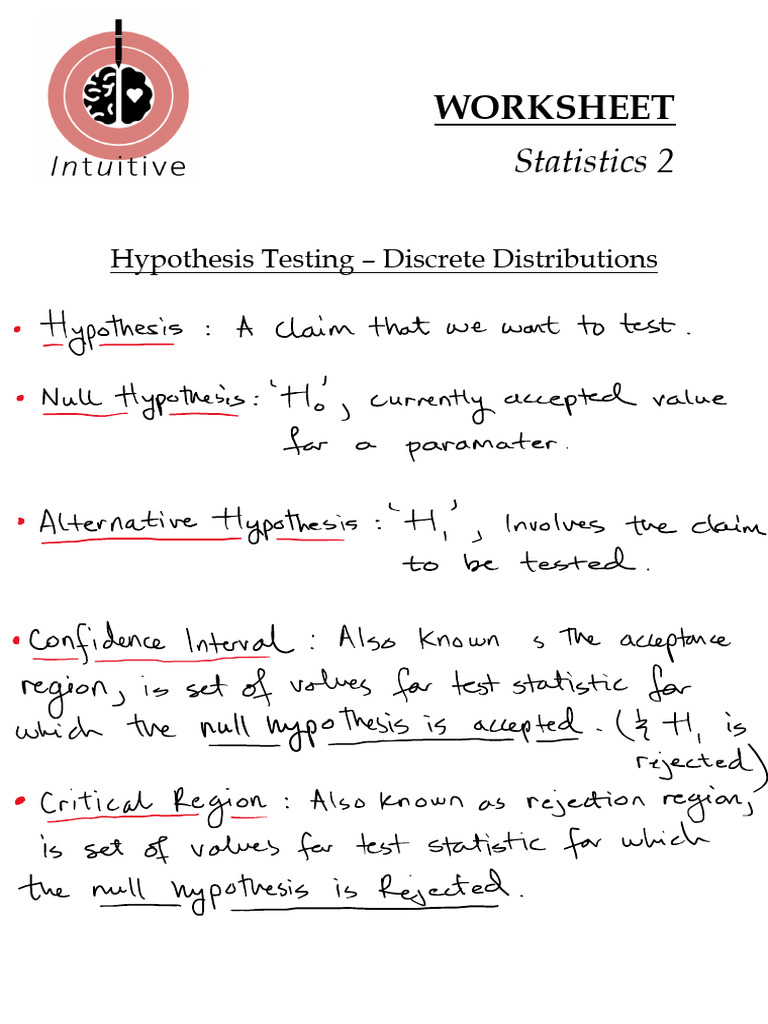 WORKSHEET
Statistics 2
Intuitive
Hypothesis Testing – Discrete Distributions
• Hypothesis : A claim that we want to test.
• Null Hypothesis : 'H₀', currently accepted value
for a paramater.
• Alternative Hypothesis : 'H₁', Involves the claim
to be tested.
• Confidence Interval : Also known s the acceptance
region, is set of values for test statistic for
which the null hypothesis is accepted. (& H₁ is
rejected)
• Critical Region : Also known as rejection region,
is set of values for test statistic for which
the null hypothesis is Rejected.